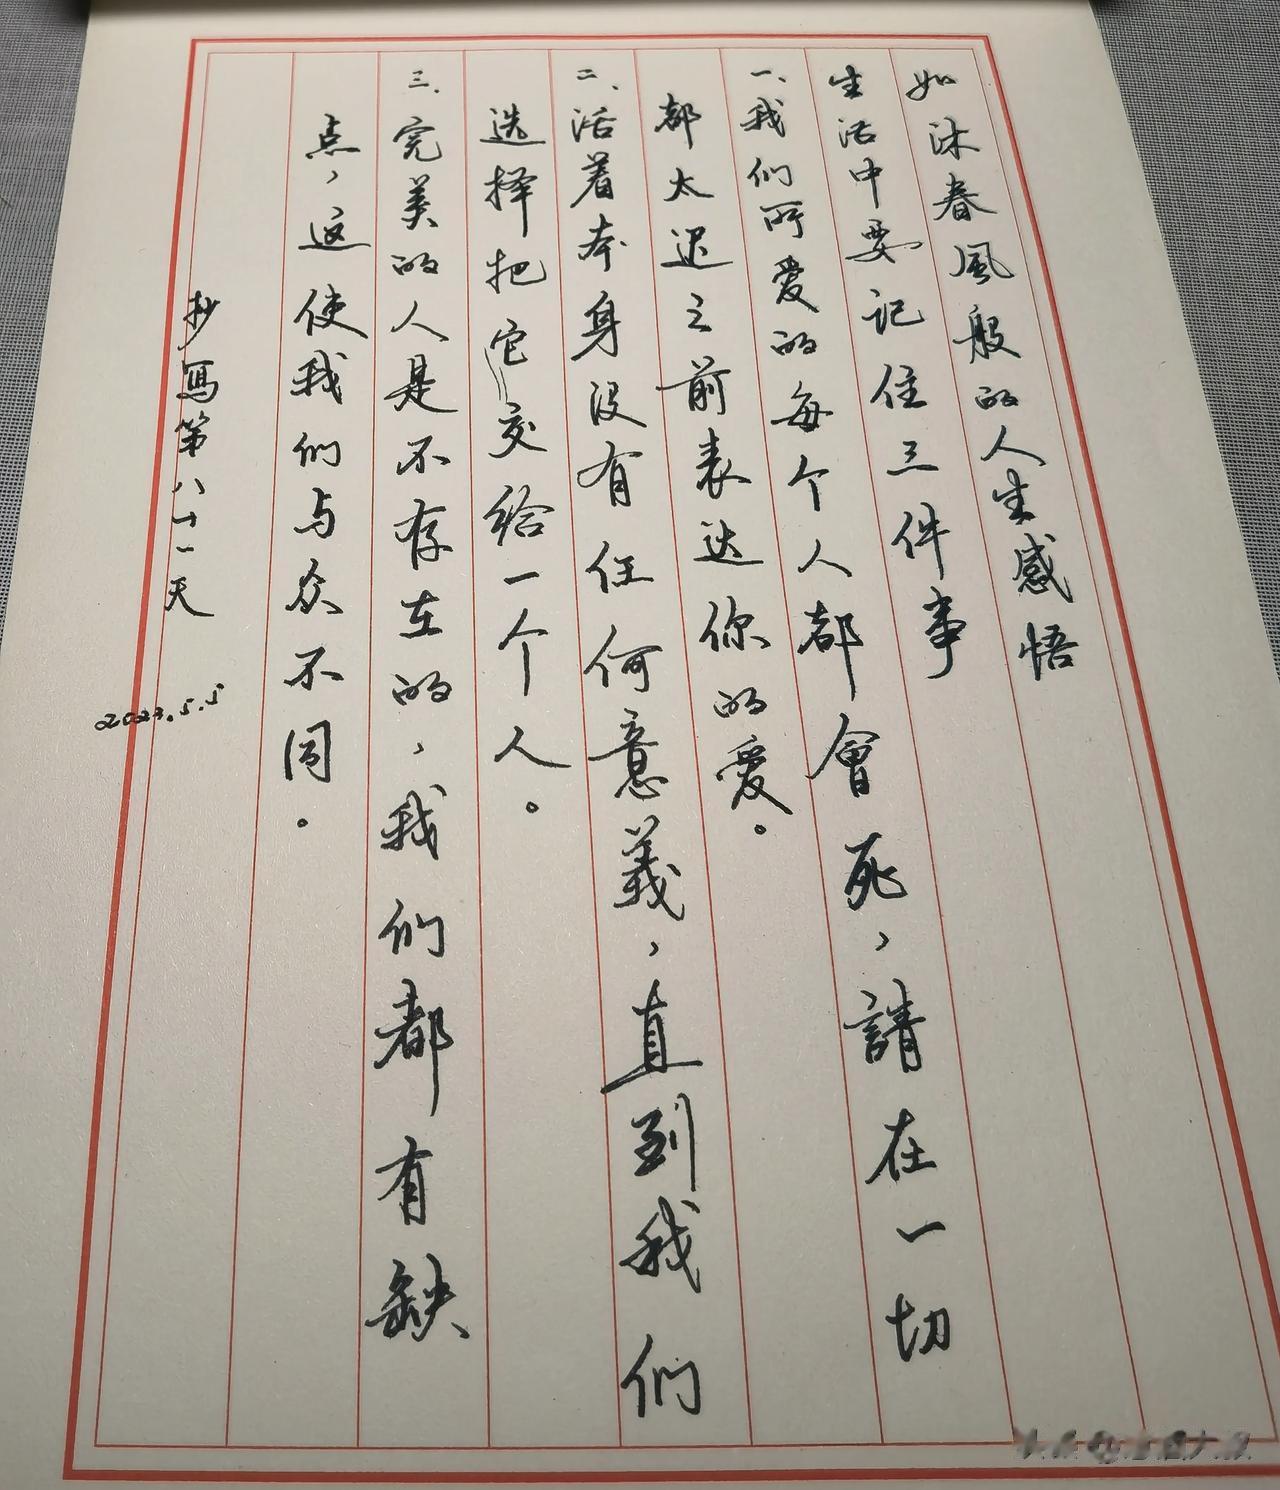 如沐春風般的人生感悟
生活中要记住三件事
一、我们所爱的每个人都會死，請在一切
都太迟之前表达你的爱。
二、活着本身没有任何意義，直到我们
选择把它交给一个人。
三、完美的人是不存在的，我们都有缺
点，这使我们与众不同。
抄写第八十一天
2023.5.5